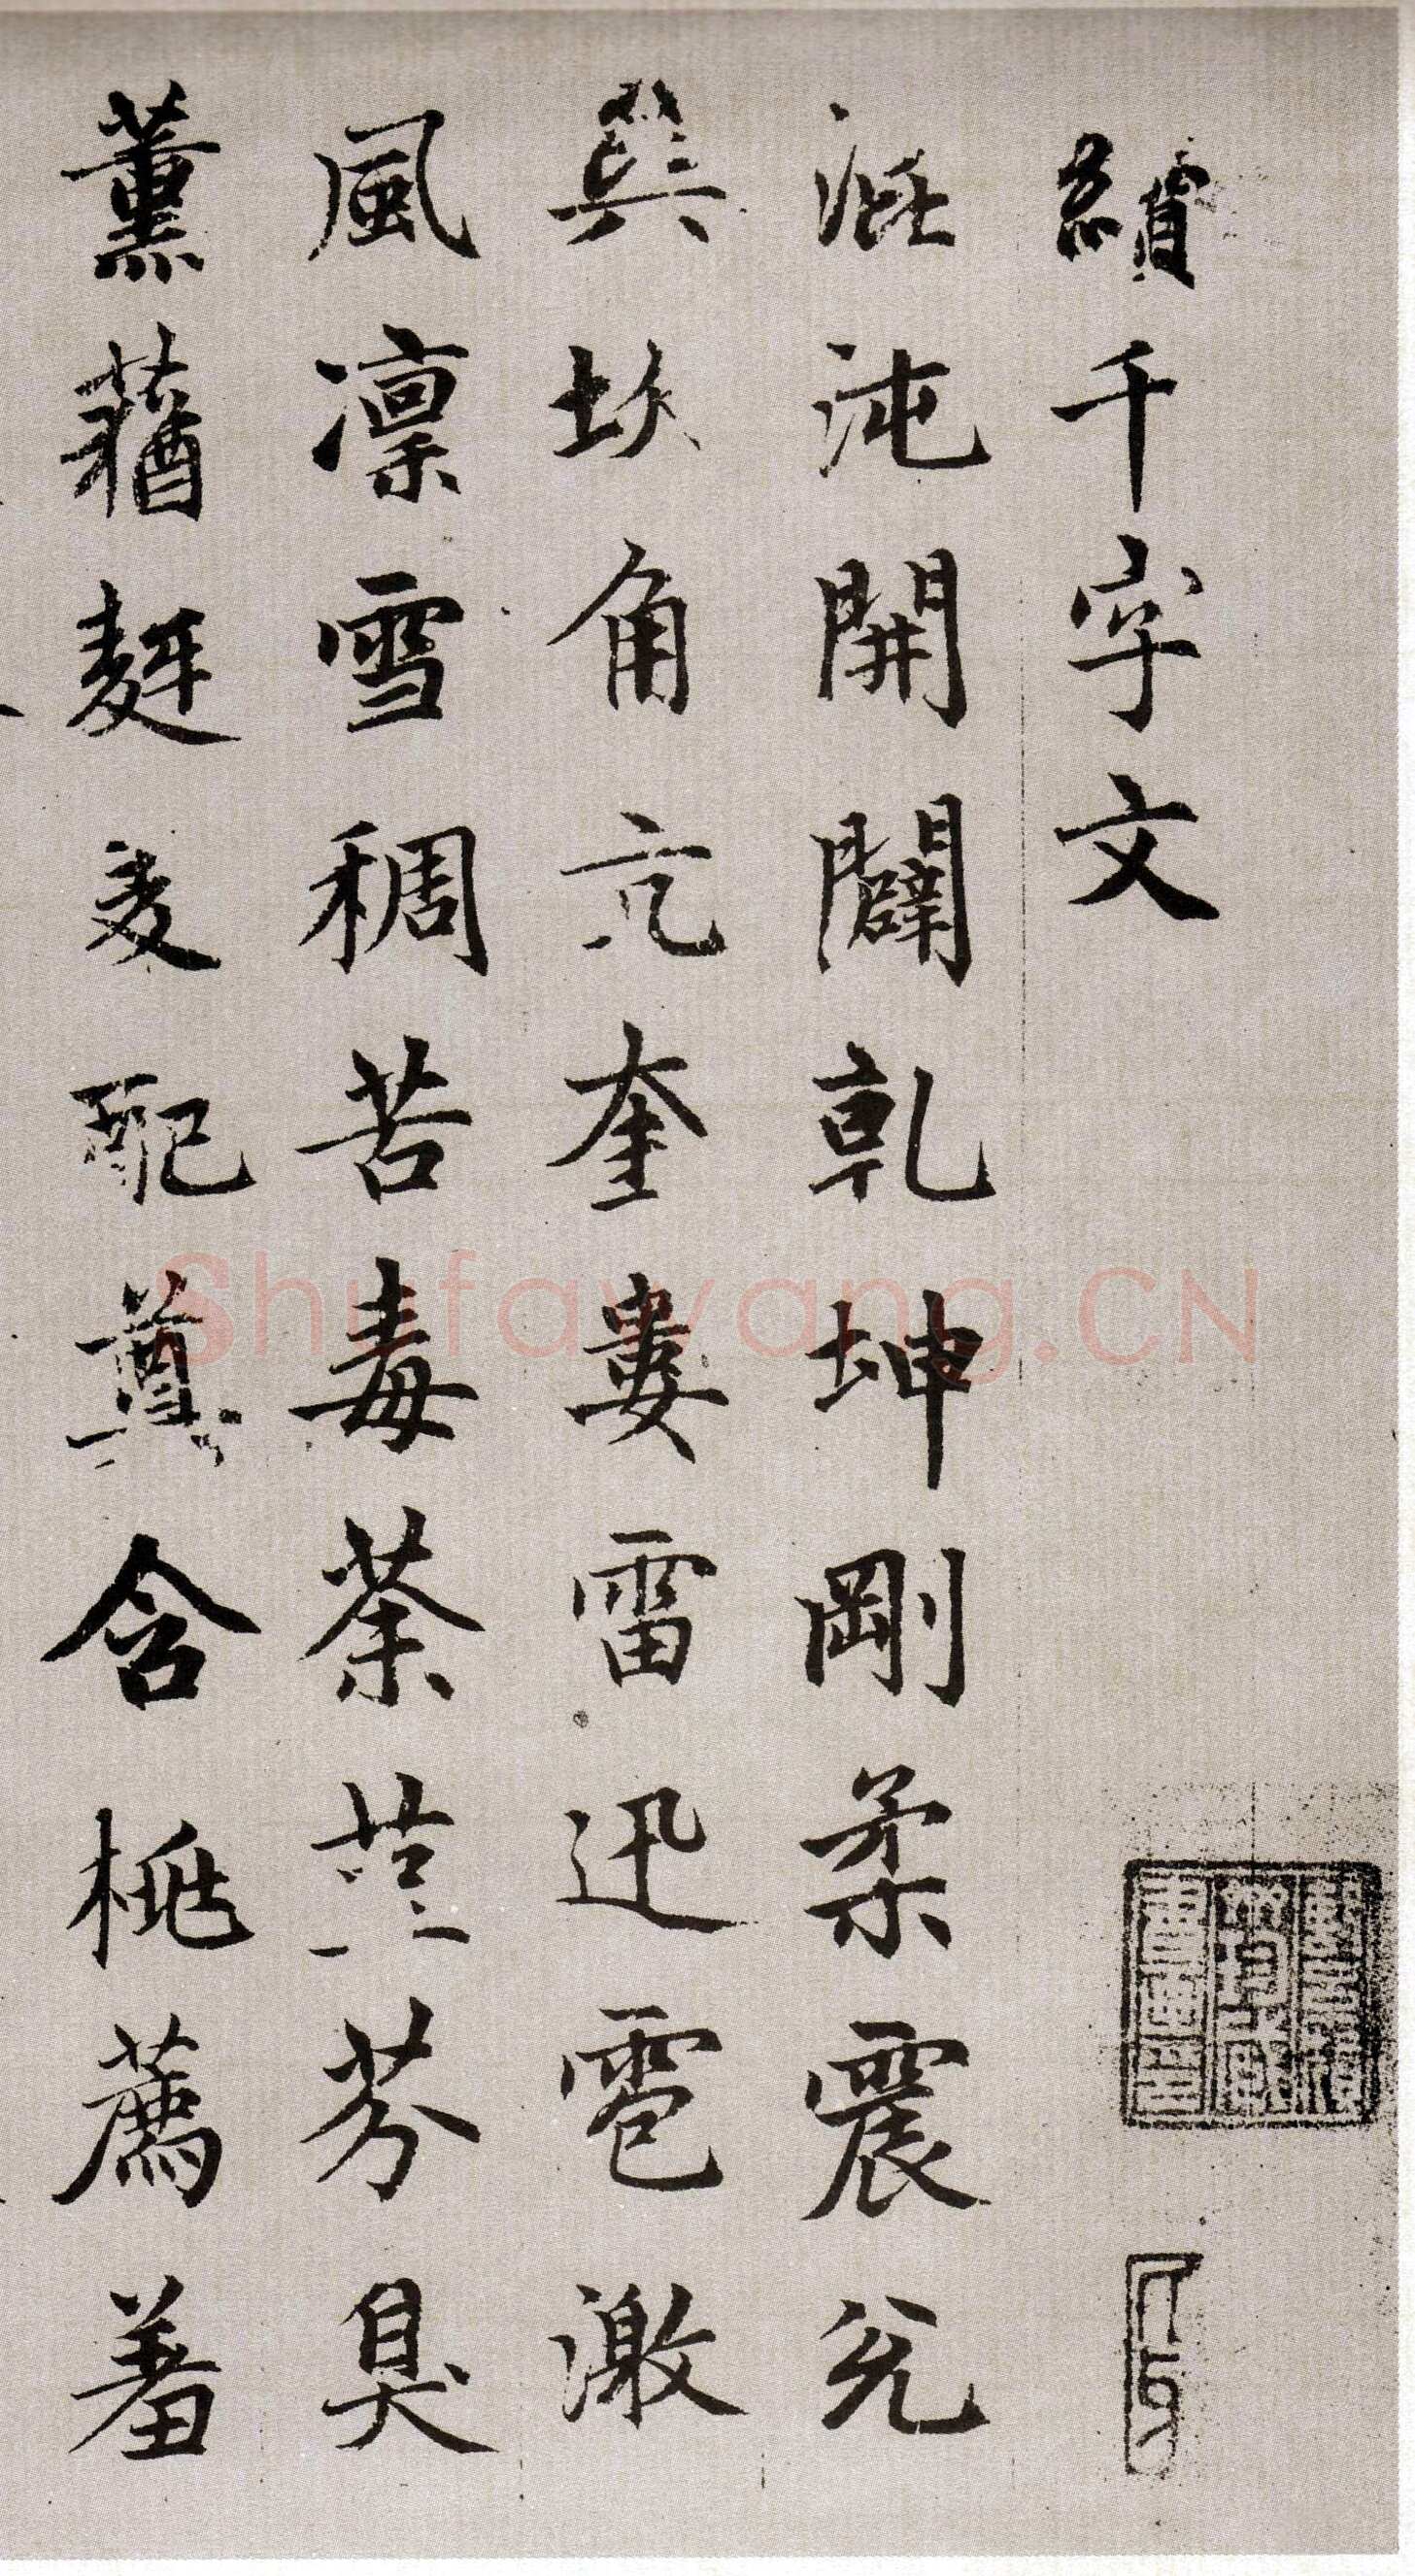 續千字文
混沌開闢乾坤剛柔震兌
巽坎角亢奎婁雷迅雹激
風凛雪稠苦毒荼堇芬臭
薰蕕麰麥配奠含桃薦羞
Shufawang.CN